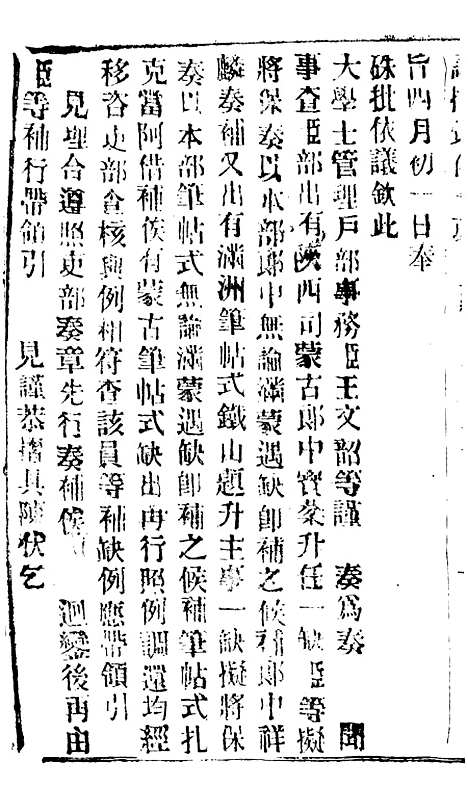 旨四月初一日奉
硃批依議欽此
大學士管理戶部事務臣王文韶等謹 奏爲奏 聞
事查臣部出有陝西司蒙古郎中寶棻升任一缺臣等擬
將保奏以本部郎中無論滿蒙遇缺即補之候補郎中祥
麟奏補又出有滿洲筆帖式鐵山題升主事一缺擬將保
奏以本部筆帖式無論滿蒙遇缺卽補之候補筆帖式扎
克當阿借補俟有蒙古筆帖式缺出再行照例調還均經
移咨吏部查核與例相符查該員等補缺例應帶領引
見理合遵照吏部奏章先行奏補俟 迴鑾後再由
臣等補行帶領引 見謹恭摺具陳伏乞